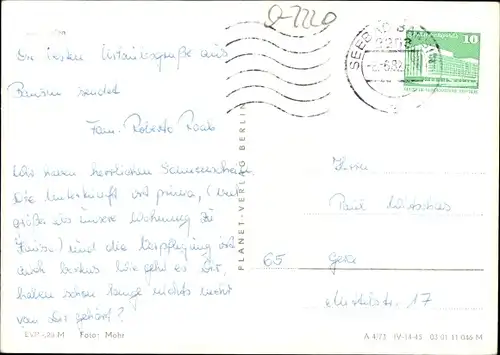 Die besten Urlaubsgrüße aus
Bansin sendet
Fam. Roberto Raab
Wir haben herrlichen Sonnenschein.
Die Unterkunft ist prima, (viel
größer als unsere Wohnung zu
Hause) und die Verpflegung ist
auch bestens. Wie geht es Dir,
haben schon lange nichts mehr
von Dir gehört?
EVP -,20 M Foto: Mohr
PLANET-VERLAG BERLIN
SEEBAD BANSIN
10
Herrn
Paul
65 Gera
17
A 4/73 IV-14-45 03 01 11 046 M